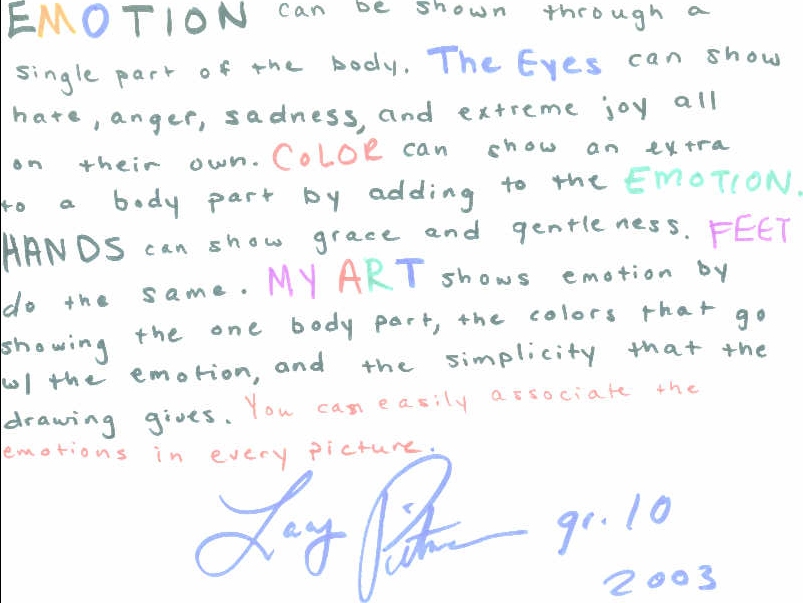 EMOTION can be shown through a
single part of the body. The Eyes can show
hate, anger, sadness, and extreme joy all
on their own. COLOR can show an extra
to a body part by adding to the EMOTION.
HANDS can show grace and gentleness. FEET
do the same. MY ART shows emotion by
showing the one body part, the colors that go
w/ the emotion, and the simplicity that the
drawing gives. You can easily associate the
emotions in every picture.
gr. 10
2003